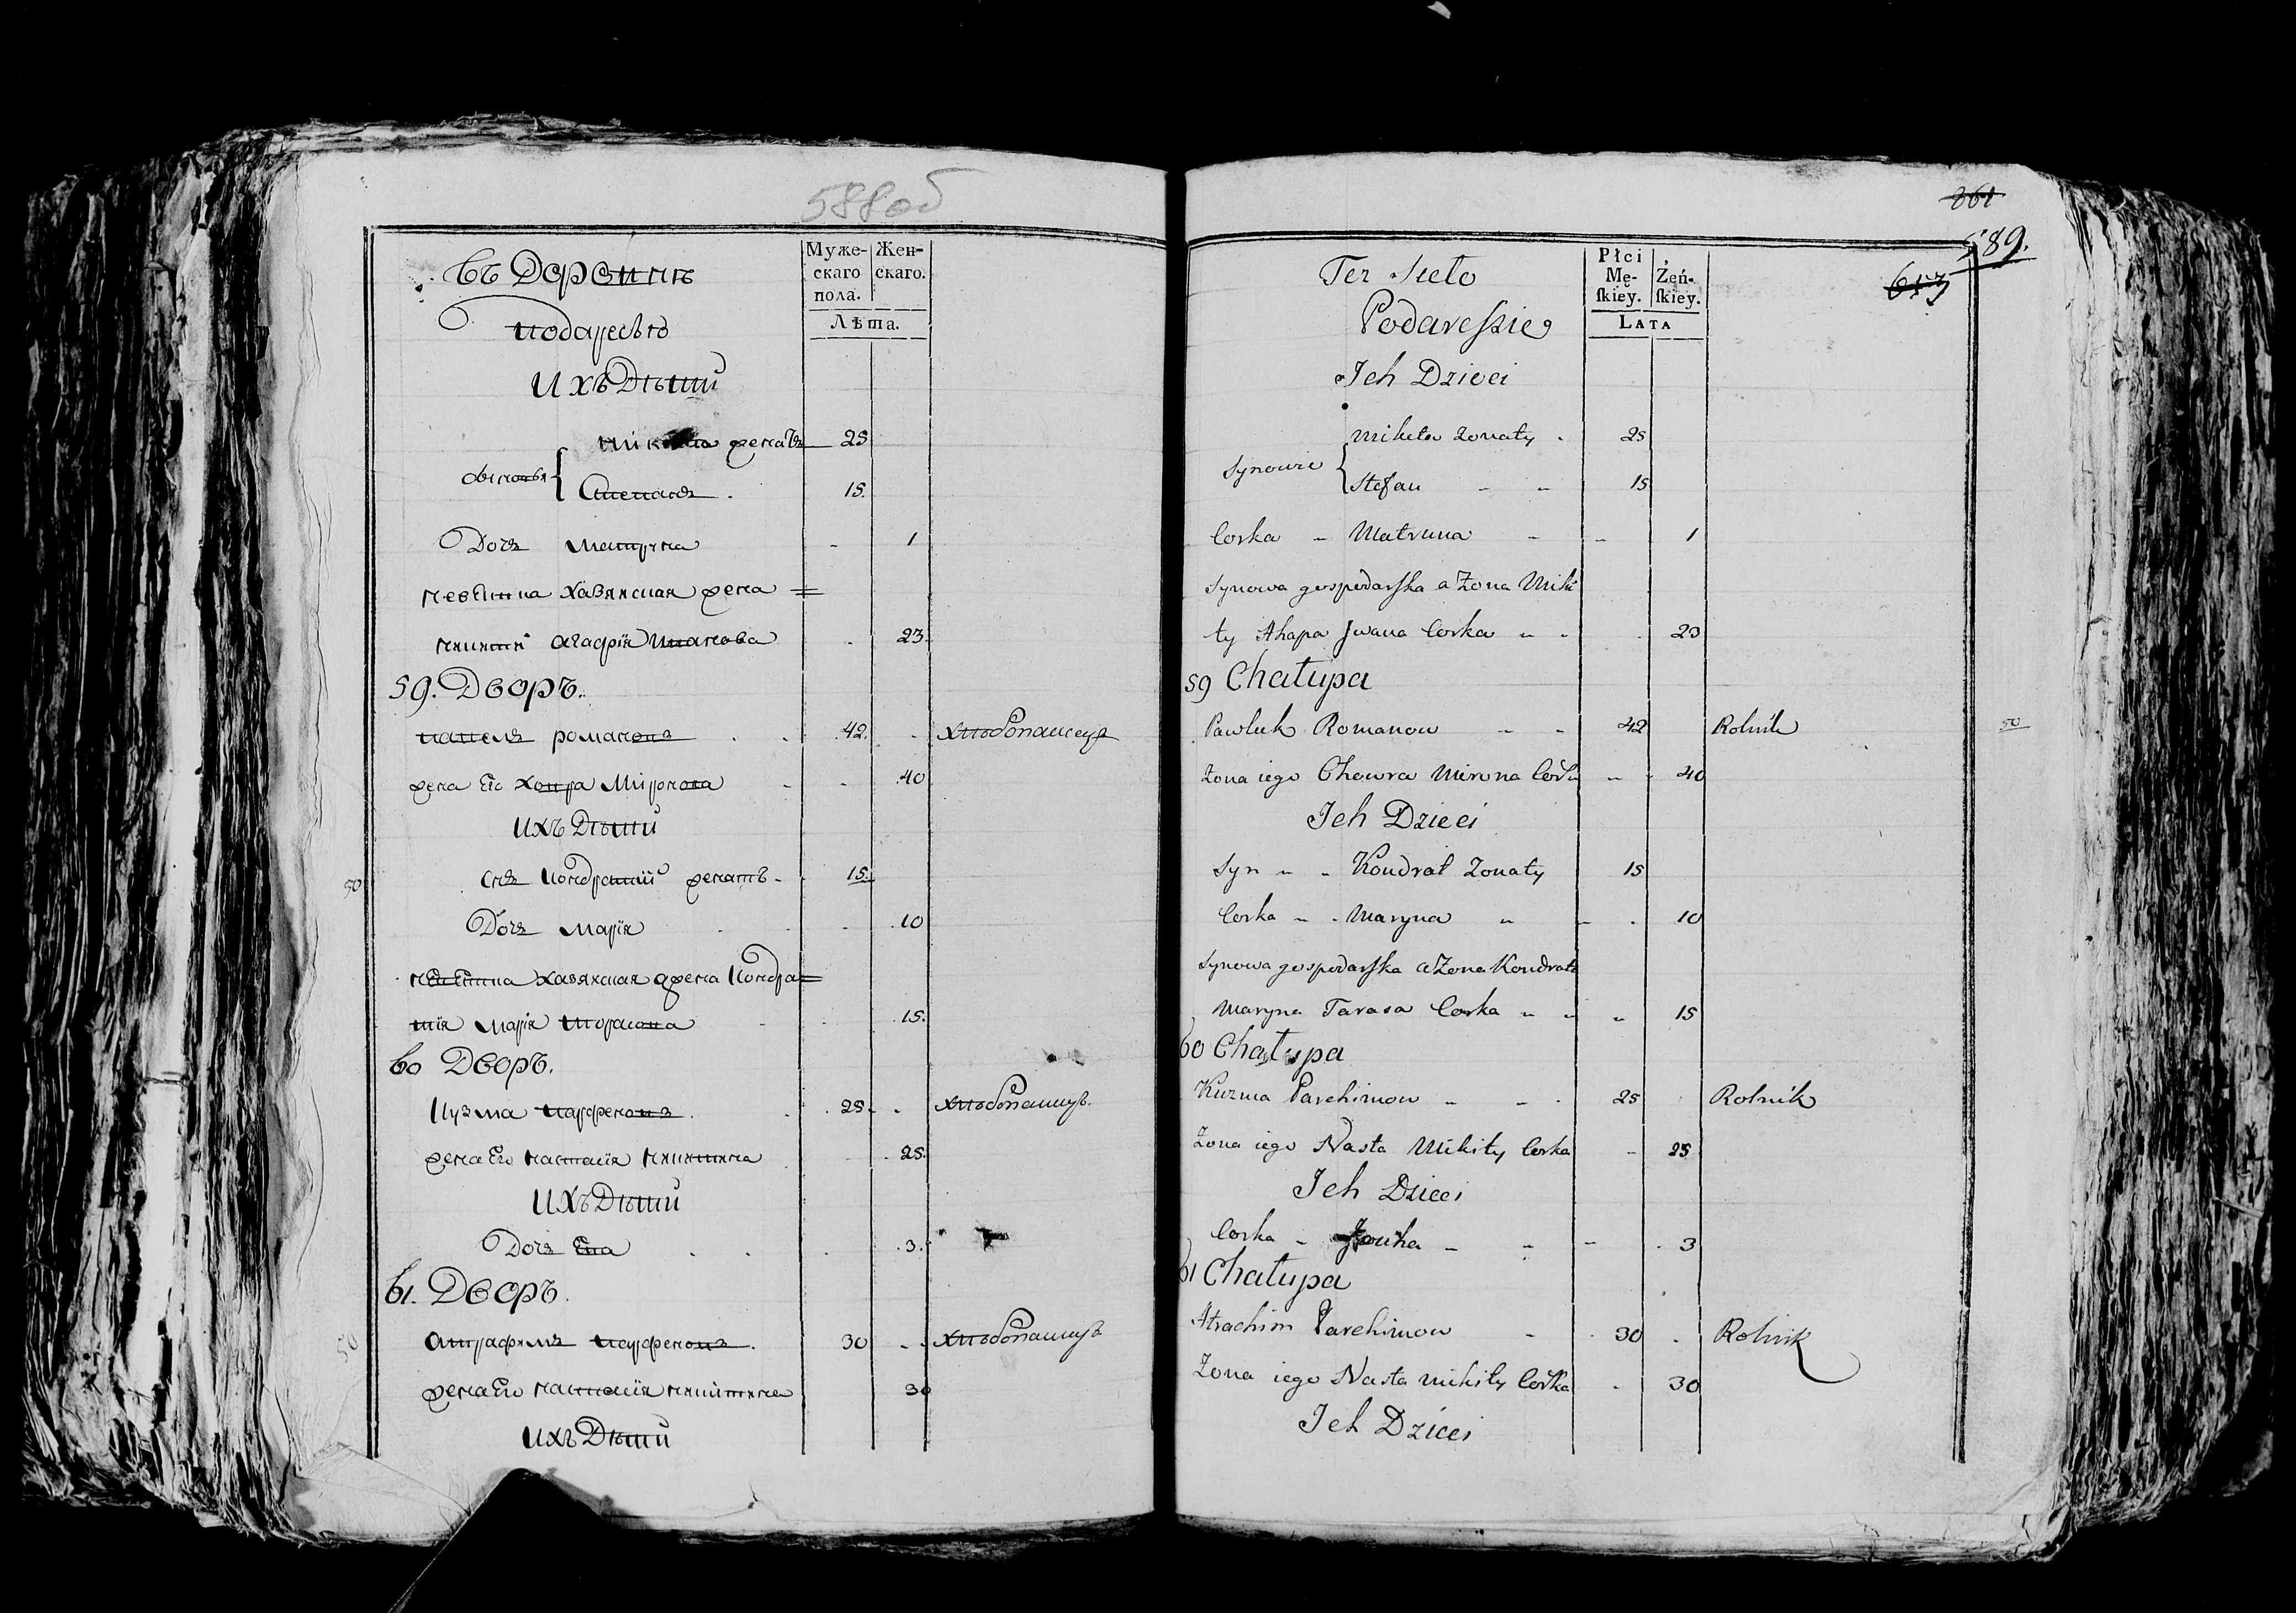 588об
въ Деревнѣ
Подаресье
Муже-
скаго
пола.
Жен-
скаго.
Лѣта.
ИХЪ Дѣти
Никита женатъ 25
сыновья
Степанъ 15.
Дочь Матруна 1
невѣстка хазяйская жена
Никиты Агафія Иванова 23.
59. Дворъ.
Павелъ Романовъ 42. хлѣбопашецъ
жена Его Ховра Миронова 40
ИХЪ Дѣти
50
снъ Кондратій женатъ 15.
Дочь Марія 10
невѣстка хазяйская жена Кондра=
тія Марія Торасова 15.
60 Дворъ.
Кузма Парфеновъ 25. хлѣбопашецъ
жена Его Настасія Никитина 25.
ИХЪ Дѣти
Дочь Ева 3.
61. Дворъ.
50
Парфеновъ 30 хлѣбопашецъ
жена Его Настасія Никитина 30
ИХЪ Дѣти
861
589.
653
Podaresskie
Płci
Mę-
ſkiey.
Żeń-
ſkiey.
LATA
Ich Dzieci
Mikita Żonaty 25
Synowie
Stefan 15
Corka Matruna 1
Synowa gospodarſka a Żona Miki
ty Ahapa Jwana Corka 23
59 Chałupa
Pawluk Romanow 42 Rolnik
50
Żona iego Chowra Mirona Corka 40
Ich Dzieci
Syn Kondrat Żonaty 15
Corka Maryna 10
Synowa gospodarſka a Żona Kondrata
Maryna Tarasa Corka 15
60 Chałupa
Kuzma Parchimow 25 Rolnik
Żona iego Nasta Mikity Corka 25
Ich Dzieci
Corka 3
61 Chałupa
Atrachim Parchimow 30 Rolnik
Żona iego Nasta Mikity Corka 30
Ich Dzieci